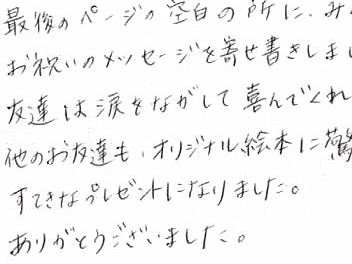 最後のページの空白の所に、み
お祝いのメッセージを寄せ書きしまし
友達は涙をながして喜んでくれ
他のお友達も、オリジナル絵本に驚
すてきなプレゼントになりました。
ありがとうございました。